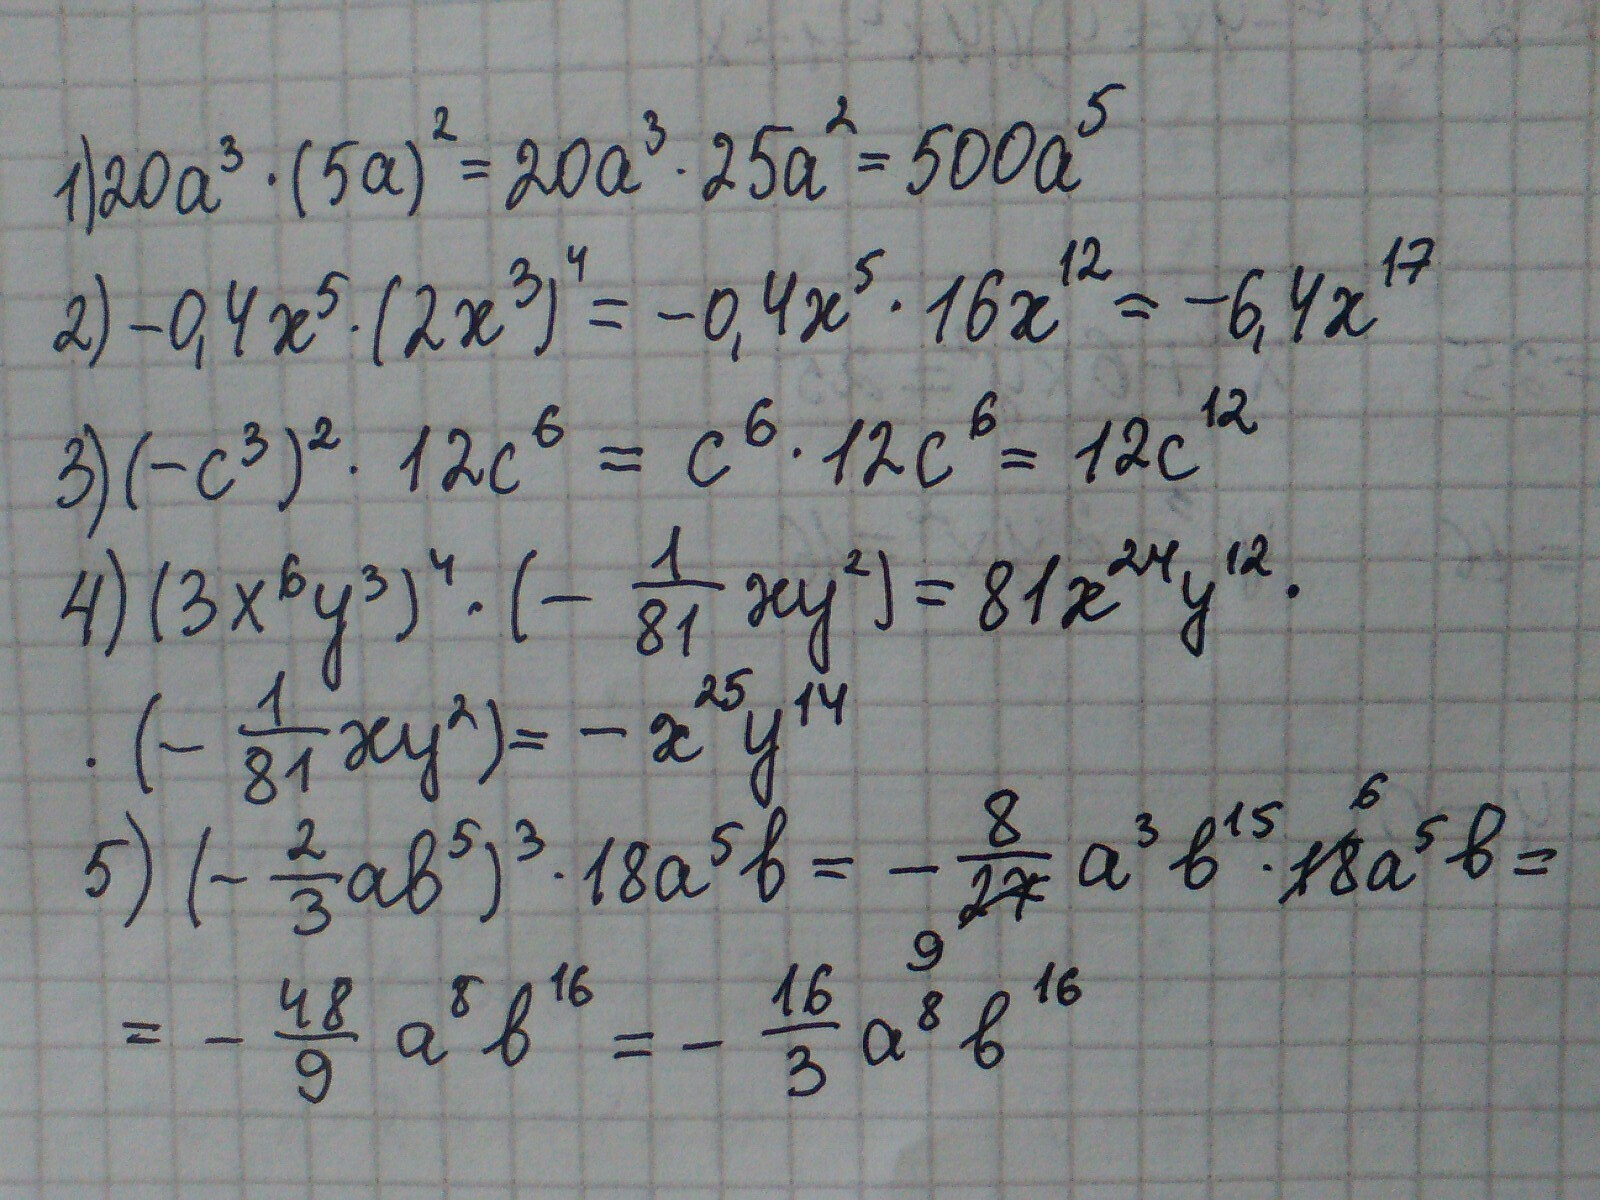 1) 20a³ · (5a)² = 20a³ · 25a² = 500a⁵
2) -0,4x⁵ · (2x³)⁴ = -0,4x⁵ · 16x¹² = -6,4x¹⁷
3) (-c³)² · 12c⁶ = c⁶ · 12c⁶ = 12c¹²
4) (3x⁶y³)⁴ · (- 1/81 xy²) = 81x²⁴y¹² ·
· (- 1/81 xy²) = - x²⁵y¹⁴
5) (- 2/3 ab⁵)³ · 18a⁵b = - 8/27 9 a³b¹⁵ · 18 6 a⁵b =
= - 48/9 a⁸b¹⁶ = - 16/3 a⁸b¹⁶